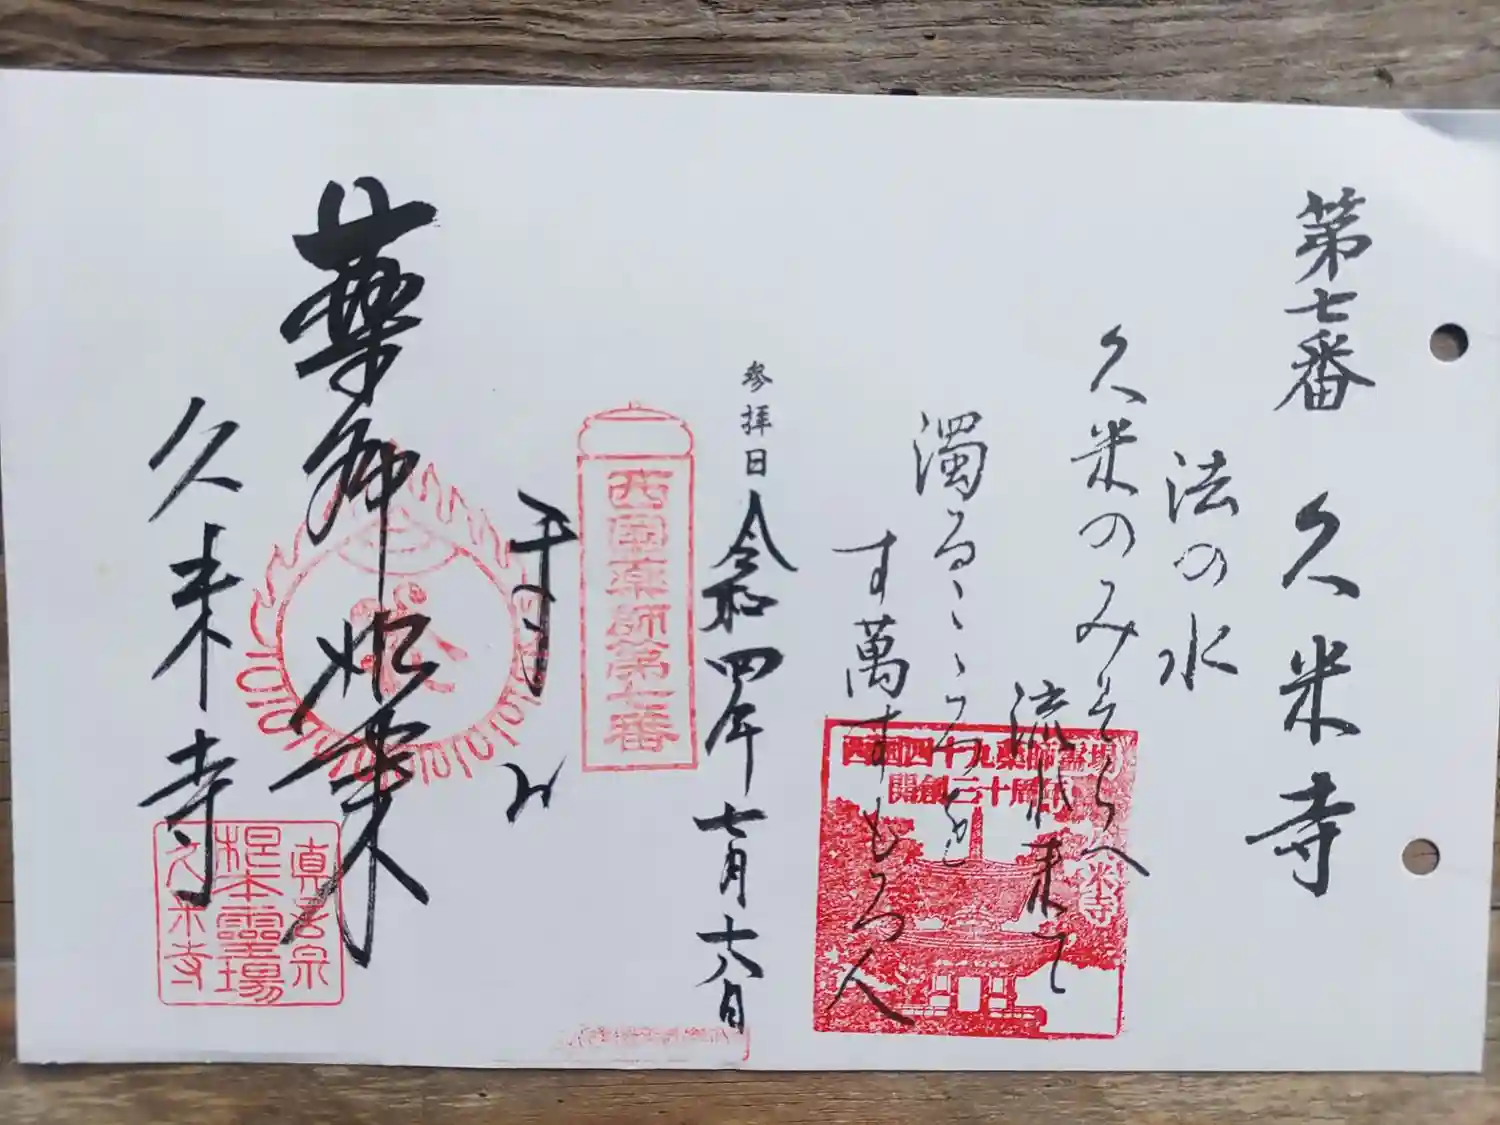 第七番 久米寺
法の水
久米のみそらへ
流れ来て
濁るこゝろを
す萬すもろ人
西国四十九薬師霊場
開創三十周年
久米寺
参拝日 令和四年七月十八日
西國薬師第七番
薬師如来
久米寺
真言宗
根本霊場
久米寺